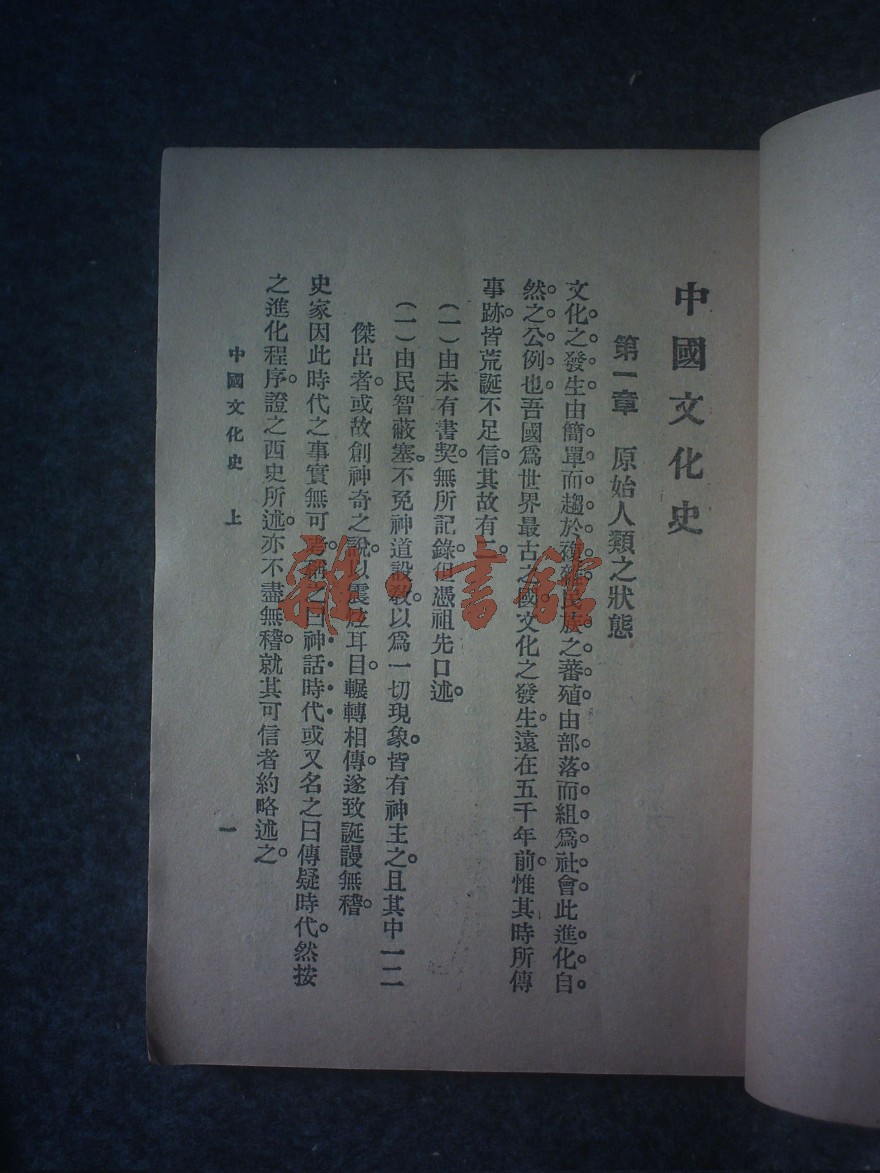 中國文化史
第一章 原始人類之狀態
文化之發生由簡單而趨於複雜民族之蕃殖由部落而組爲社會此進化自
然之公例也吾國爲世界最古之國文化之發生遠在五千年前惟其時所傳
事跡皆荒誕不足信其故有二
(一)由未有書契無所記錄但憑祖先口述。
(二)由民智蔽塞不免神道設敎以爲一切現象皆有神主之。且其中一二
傑出者或故創神奇之說以震炫耳目輾轉相傳遂致誕謾無稽。
史家因此時代之事實無可考稱之曰神話時代或又名之曰傳疑時代然按
之進化程序證之西史所述亦不盡無稽就其可信者約略述之。
中國文化史 上
一
雜·書館